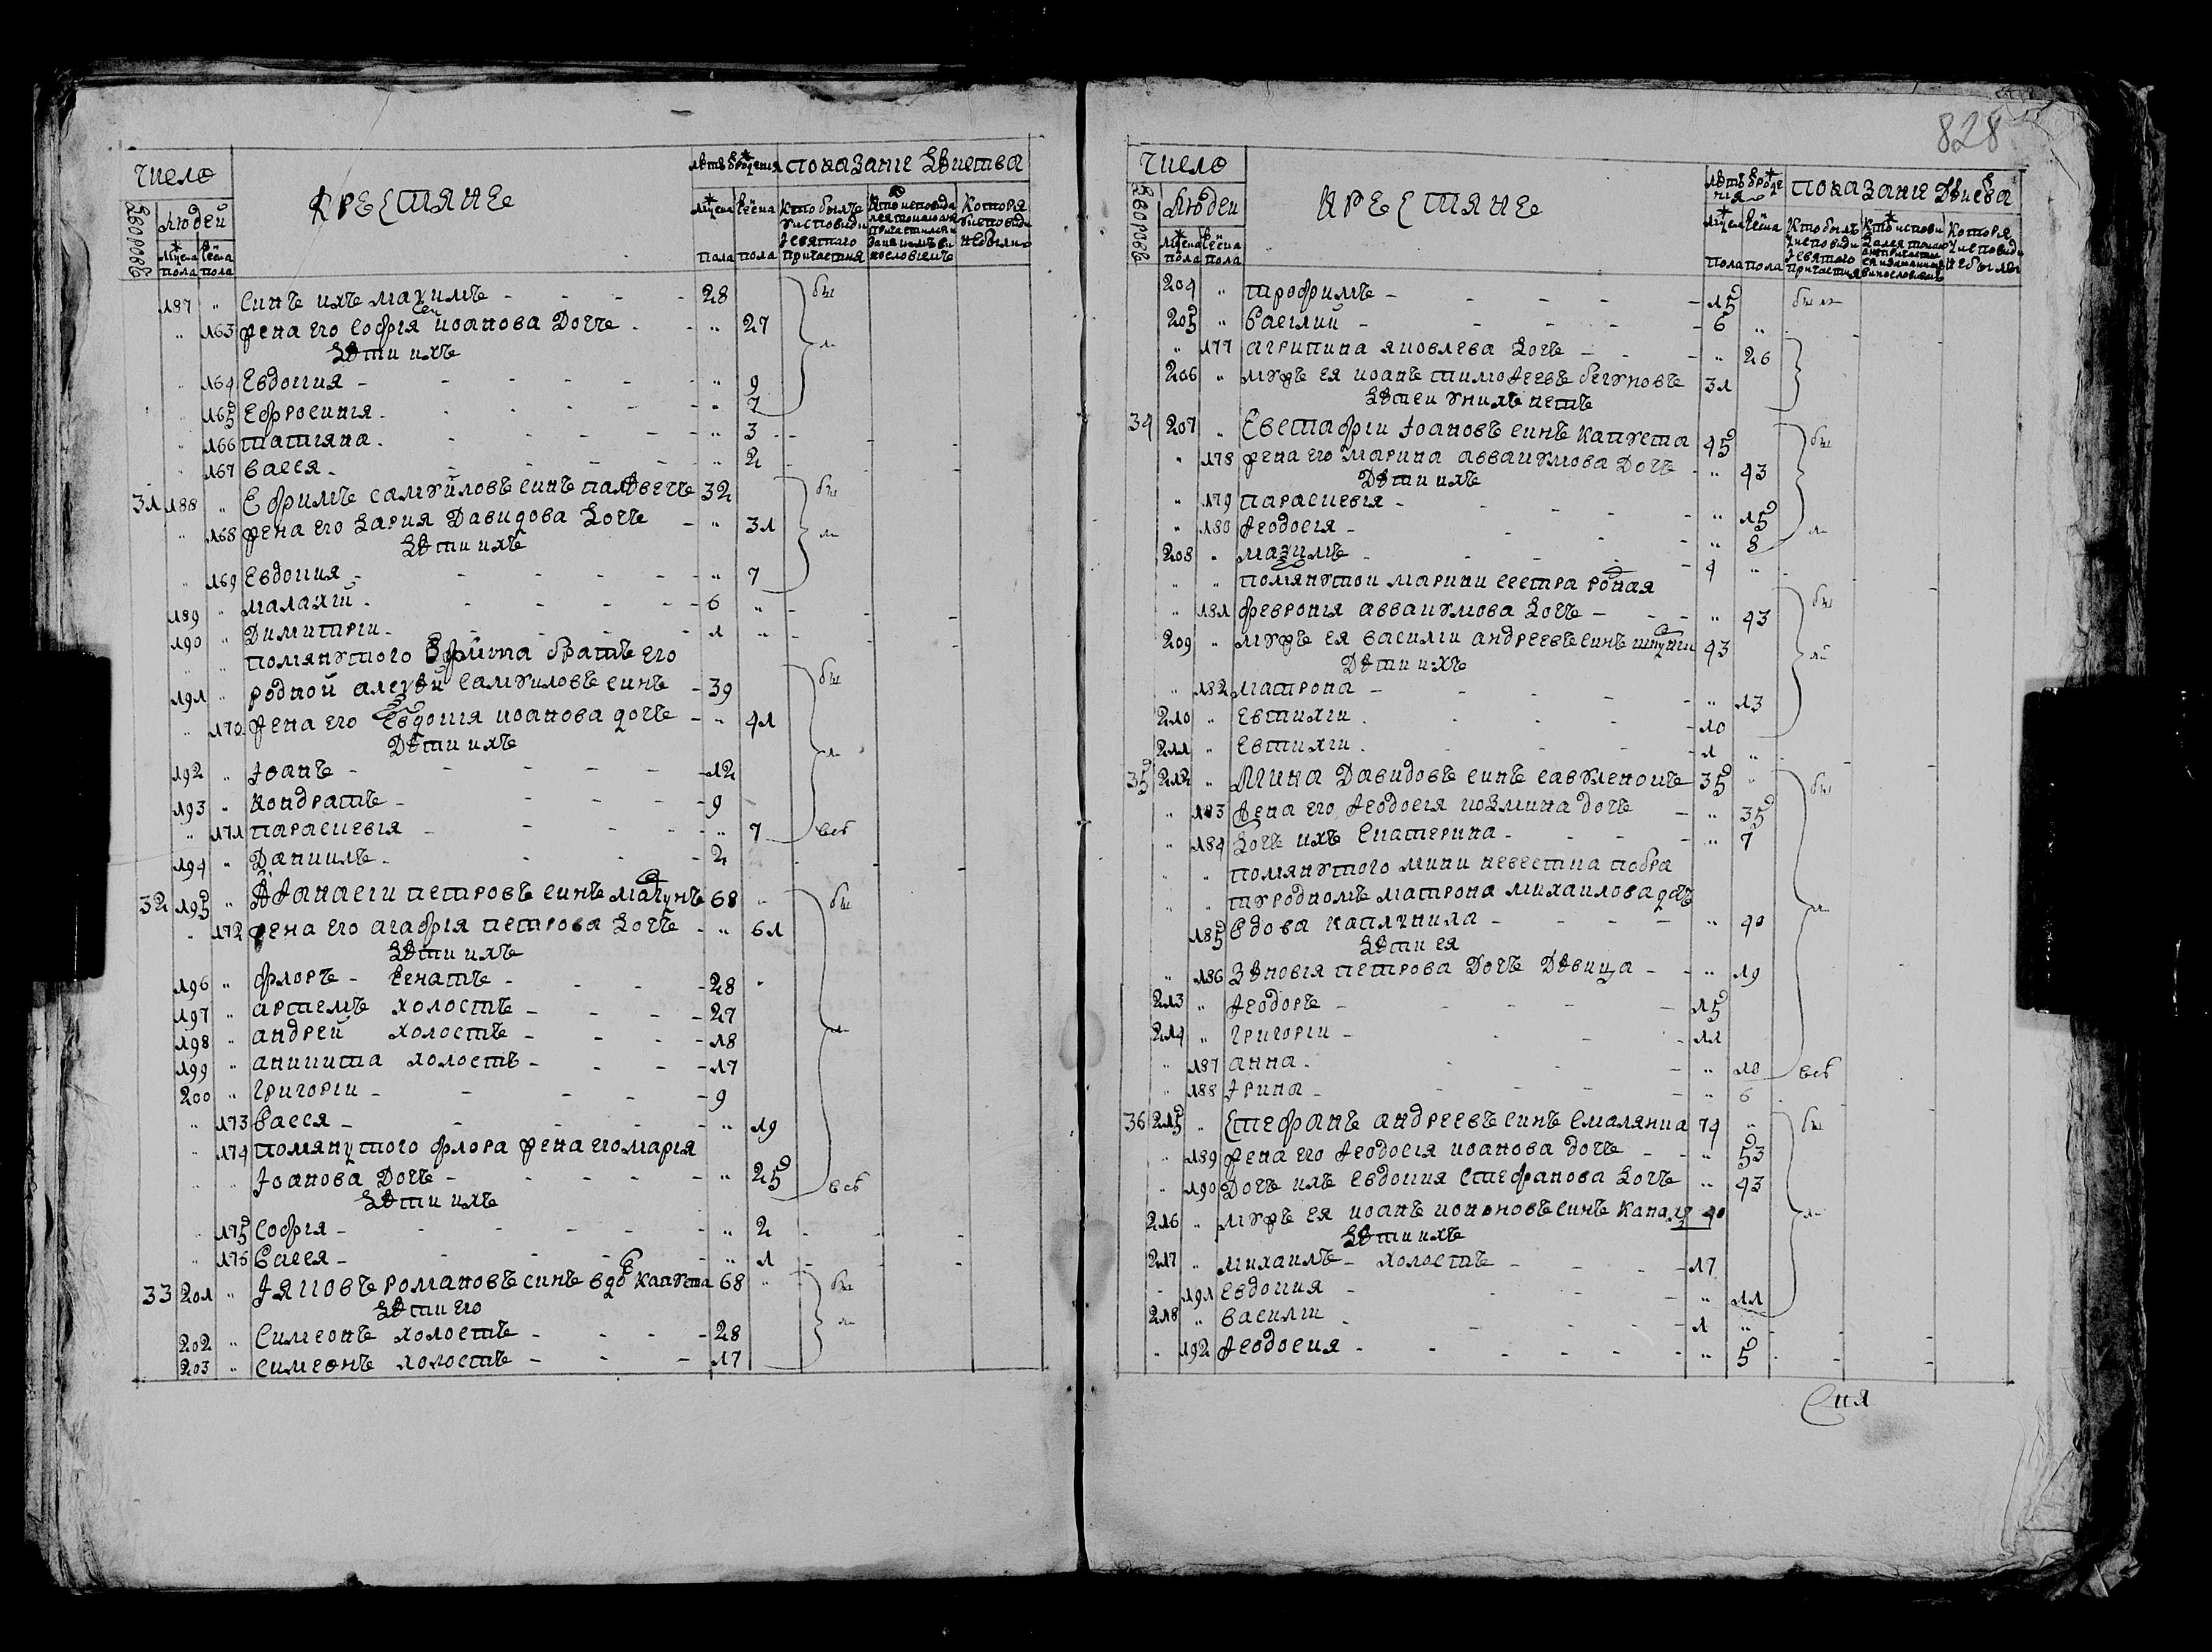 число КРЕСТЯНЕ лѣтъ ѿ рожденія показаніе двиства
дворовъ людей мужеска женска кто былъ у исповеди и святаго причастия которя у исповеди не были
мужеска пола женска пола пола пола
187 " синъ ихъ маѯимъ - 28 бы
" 163 жена его софія иоанова дочъ - " 27
дѣти ихъ ли
" 164 Евдокия - " 9
" 165 Ефросинія - " 7
" 166 татіяна - " 3
" 167 васся - " 2
31 188 " Ефримъ самуиловъ синъ палѣвечъ 32 бы
" 168 жена его дария давидова дочъ - " 31 ли
дѣти ихъ
" 169 Евдокия - " 7
189 " малахій - 6 "
190 " димитріи - 1 "
" " помянутого Ефрима братъ его
191 " родной алеѯѣй самуиловъ синъ - 39 бы
" 170 жена его Евдокія иоанова дочъ - " 41
дѣти ихъ ли
192 " Іоанъ - 12
193 " кондратъ - 9
" 171 параскевія - " 7 всѣ
194 " даниилъ - 2
32 195 " Аѳанасіи петровъ синъ 68 " бы
" 172 жена его агафія петрова дочъ - " 61
дѣти ихъ
196 " флоръ - женатъ - 28 "
197 " артемъ холостъ - 27 ли
198 " андрей холостъ - 18
199 " аникита холостъ - 17
200 " григоріи - 9
" 173 васся - " 19
" 174 помянутого флора жена его марія
" " Іоанова дочъ - " 25 всѣ
дѣти ихъ
" 175 софія - " 2
" 176 васся - " 1
33 201 " Іяковъ романовъ синъ вдовъ капуста 68 " бы
дѣти его
202 " симеонъ холостъ - 28 ли
203 " симеонъ холостъ - 17
828
число КРЕСТЯНЕ лѣтъ ѿ рожденія показаніе двиства
дворовъ людеи мужеска женска кто былъ у исповеди и святого причастия которя у исповеди не были
мужеска пола женска пола пола пола
204 " трофимъ - 15 были
205 " василий - 6 "
" 177 агрипина яковлева дочъ - " 26
206 " мужъ ея иоанъ тимоѳеевъ бегуновъ 31
дѣтеи у нихъ нетъ
34 207 " Евстафіи Іоановъ синъ капуста 45 бы
" 178 жена его марина аввакумова дочъ - " 43
дѣти ихъ
" 179 параскевія - " 15
" 180 ѳеодосія - " 8 ли
208 " маѯимъ - 4 "
" " помянутои марини сестра родная
" 181 феврония аввакумова дочъ - " 43 бы
209 " мужъ ея василіи андреевъ синъ 43
дѣти ихъ ли
" 182 матрона - " 13
210 " евтихіи - 10
211 " евтихіи - 1 "
35 212 " Мина давидовъ синъ савуленокъ 35 " бы
" 183 жена его ѳеодосія козмина дочъ - " 35
" 184 дочъ ихъ екатерина - " 7
" " помянутого мини невестка по бра
" " ту родномъ матрона михаилова дочъ ли
185 вдова каплунила - " 40
дѣти ея
" 186 зѣновія петрова дочъ дѣвица - " 19
213 " ѳеодоръ - 15
214 " григоріи - 11
" 187 анна - " 10 всѣ
" 188 Ірина - " 6
36 215 " Стефанъ андреевъ синъ смалянка 74 " бы
" 189 жена его ѳеодосія иоанова дочъ - " 53
" 190 дочъ ихъ евдокия стефанова дочъ " 43
216 " мужъ ея иоанъ кононовъ синъ 40 ли
дѣти ихъ
217 " михаилъ - холостъ - 17
" 191 евдокия - " 11
218 " василіи - 1 "
" 192 ѳеодосия - " 5
Сия